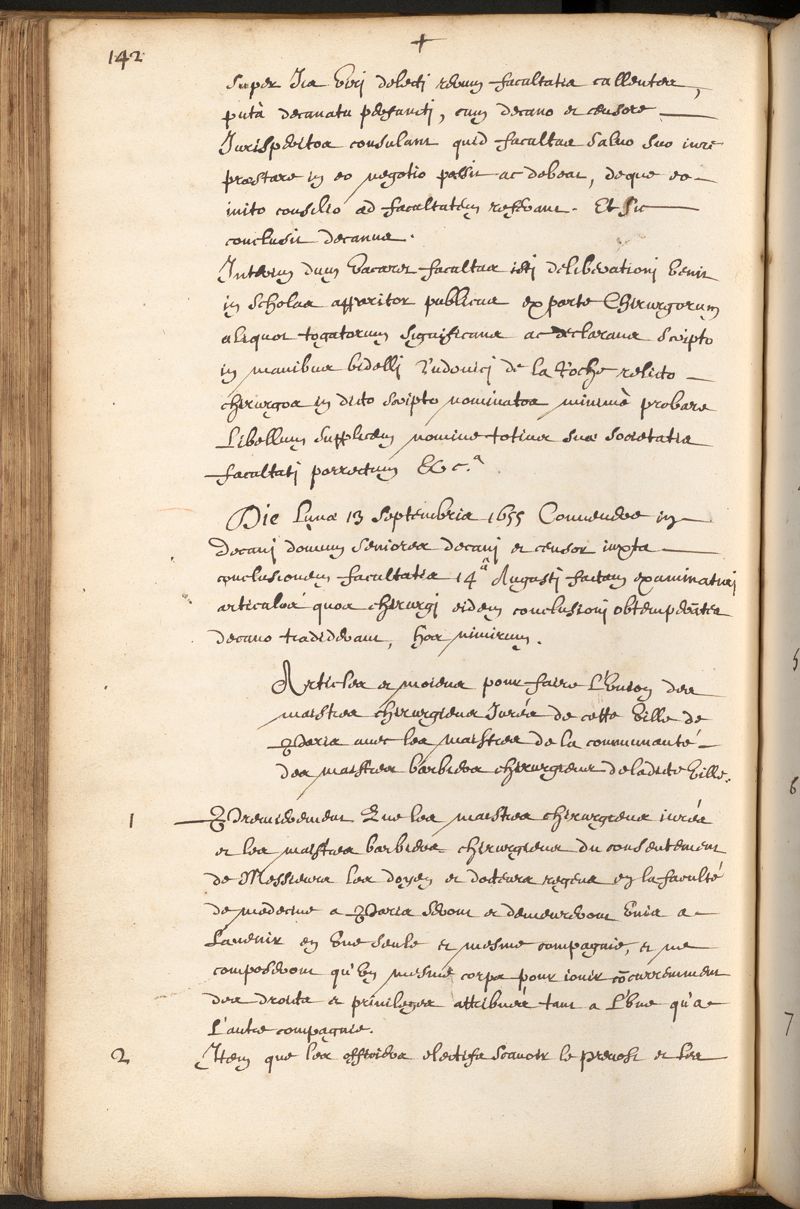 142
+
super ija viri delecti rerum facultatis callentes,
putà decanatu perfuncti, cum decano et censore
Jurisperitos consulant quid facultas salvo suo iure
præstare in eo negotio possit ac debeat, deque eo
inito consilio ad facultatem referant. Et sic
conclusit decanus.
Interim dum vacaret facultas isti deliberationi venit
in scholas apparitor publicus ex parte Chirurgorum
aliquot togatorum significans ac declarans scripto
in manibus bidelli Ludovici de la Roche relicto
chirurgos in dicto scripto nominatos minimè probare
Libellum supplicem nomine totius suæ societatis
facultati porrectum &c.ª
Die Lunæ 13 Septembris 1655 Convenere in
decani domum seniores decani et censor iuxta
conclusionem facultatis 14ª Augusti factam examinaturi
articulos quos chirurgi eidem conclusioni obtemperãtes
decano tradiderant, hos nimirum.
Articles et moiens pour faire L'Union des
maistres chirurgiens Jurés de cette ville de
Paris avec les maistres de la communauté
des maistres barbiers chirurgiens de ladite ville.
1 Premierement Que les maistres chirurgiens iurés
et les maistres barbiers chirurgiens du consentement
de Messieurs les doyen et docteurs regens en la faculté
de medecine a Paris seront et demeureront unis a
L'avenir en une seule et mesme compagnie, et ne
composeront qu'en mesme corps pour iouir cõcurremment
des droits et privileges attribués tant a L'une qu'a
L'autre compagnie.
2 Item que les officiers electifs scavoir le prevost et les